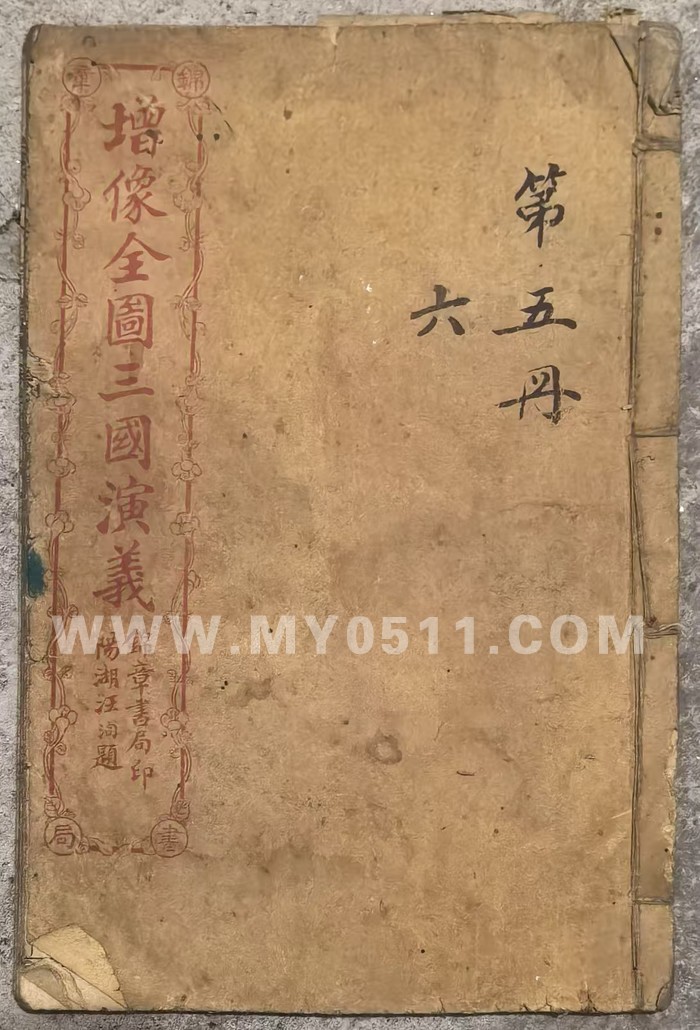 第五册
六
增像全圖三國演義
錦章書局印
陽湖汪洵題
錦章
書局
WWW.MY0511.COM